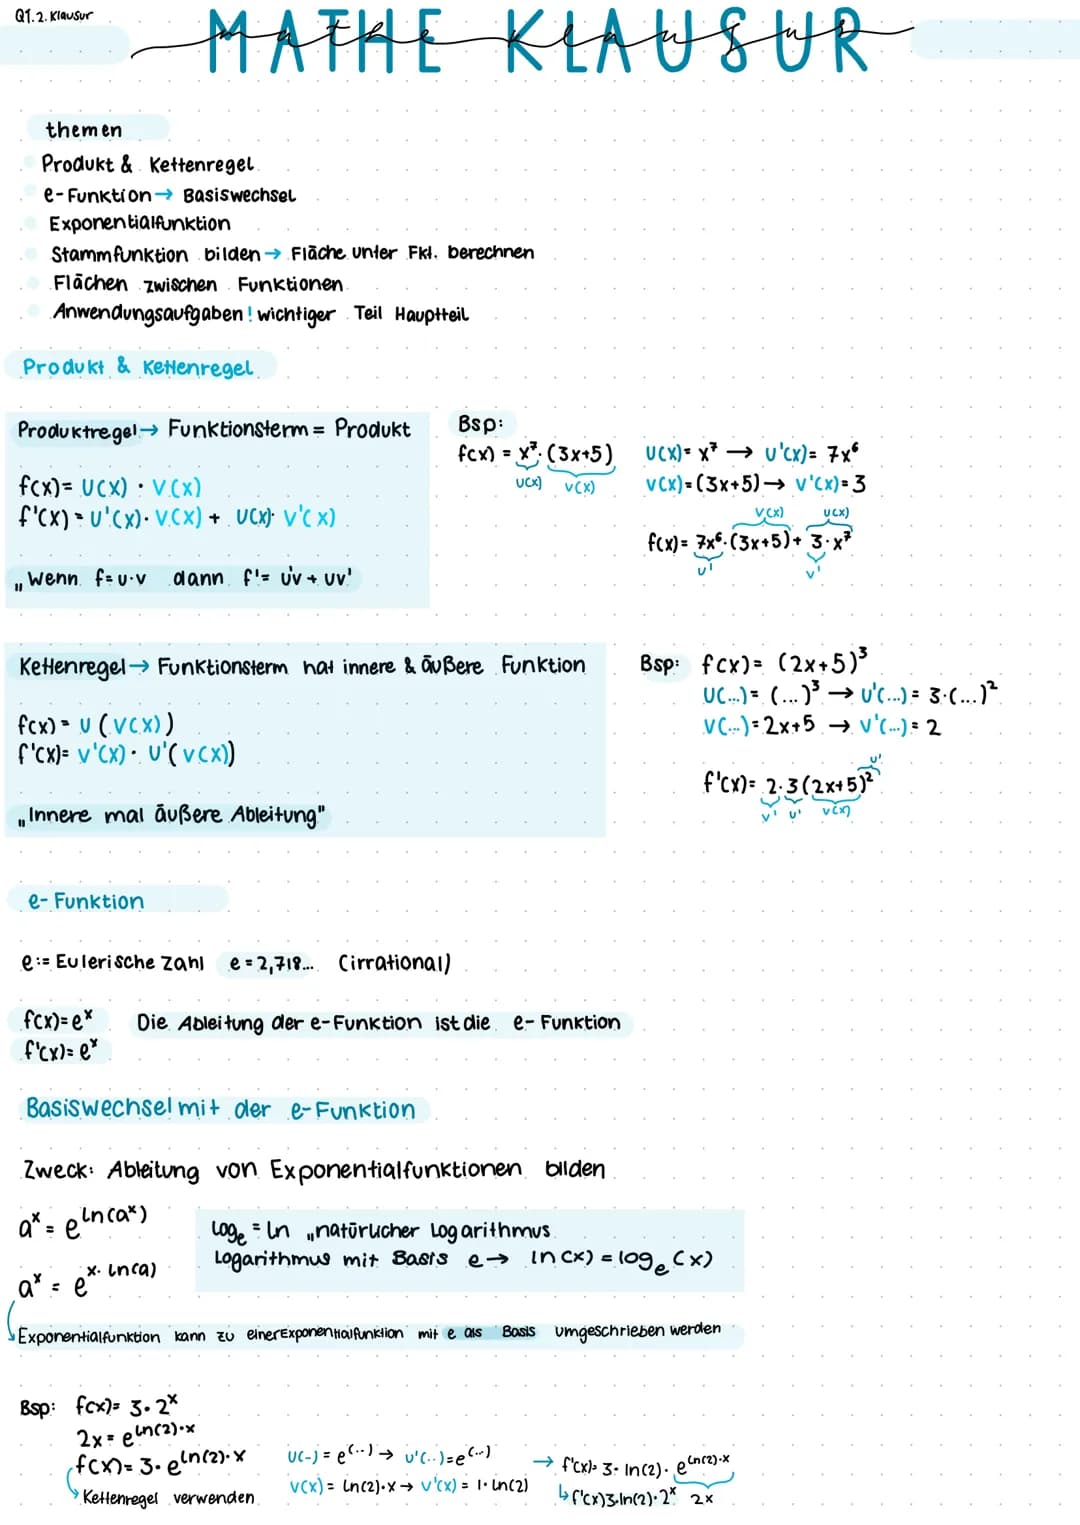 Q1.2. Klausur
MATHE KLAUSUR
mathe klausur
themen
Produkt & Kettenregel
e-Funktion → Basiswechsel
Exponentialfunktion
Stammfunktion bilden → Fläche unter Fkt. berechnen
Flächen zwischen Funktionen
Anwendungsaufgaben! wichtiger Teil Hauptteil
Produkt & Kettenregel
Produktregel → Funktionsterm = Produkt
f(x) = u(x) · v(x)
f'(x) = u'(x) · v(x) + u(x) · v'(x)
„Wenn f=u·v dann f'= u'v + uv'
Bsp:
f(x) = x⁷·(3x+5) u(x) = x⁷ → u'(x) = 7x⁶
u(x) v(x) v(x) = (3x+5) → v'(x) = 3
v(x) u(x)
f(x) = 7x⁶·(3x+5) + 3·x⁷
u' v'
Kettenregel → Funktionsterm hat innere & äußere Funktion
f(x) = u(v(x))
f'(x) = v'(x) · u'(v(x))
„Innere mal äußere Ableitung"
Bsp: f(x) = (2x+5)³
u(...) = (...)³ → u'(...) = 3·(...)²
v(...) = 2x+5 → v'(...) = 2
u'
f'(x) = 2·3(2x+5)²
v' u' v(x)
e-Funktion
e := Eulerische Zahl e = 2,718... (irrational)
f(x) = eˣ Die Ableitung der e-Funktion ist die e-Funktion
f'(x) = eˣ
Basiswechsel mit der e-Funktion
Zweck: Ableitung von Exponentialfunktionen bilden
aˣ = e^ln(aˣ)
aˣ = e^x·ln(a)
logₑ = ln „natürlicher Logarithmus
Logarithmus mit Basis e → ln(x) = logₑ(x)
Exponentialfunktion kann zu einer Exponentialfunktion mit e als Basis umgeschrieben werden
Bsp: f(x) = 3·2ˣ
2x = e^ln(2)·x
f(x) = 3·e^ln(2)·x
Kettenregel verwenden
u(-) = e^(..) → u'(..) = e^(..)
v(x) = ln(2)·x → v'(x) = 1·ln(2)
→ f'(x) = 3·ln(2)·e^ln(2)·x
↳ f'(x) 3·ln(2)·2ˣ 2x